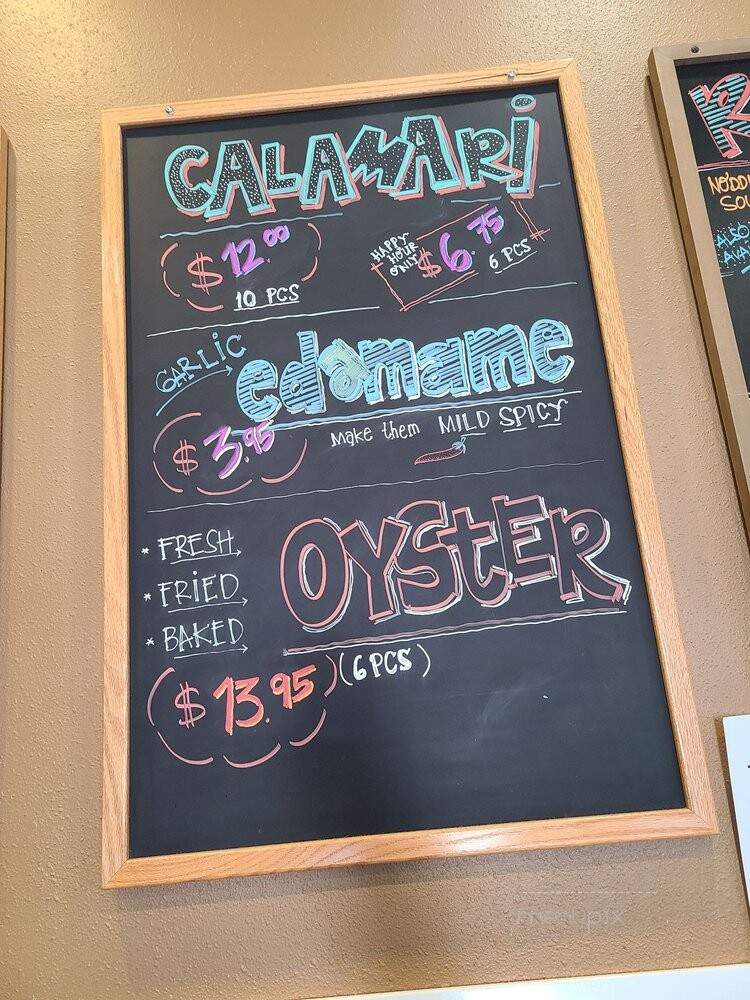 CALAMARI
$12.00
10 PCS
HAPPY
HOUR
ONLY
$6.75
6 PCS
GARLIC
edamame
$3.95
Make them MILD SPICY
* FRESH
* FRIED
* BAKED
OYSTER
$13.95 (6 PCS)
ALSO